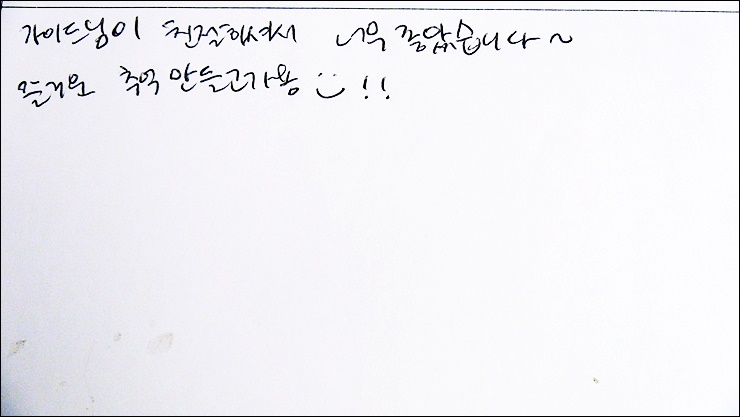 가이드님이 친절하셔서 너무 좋았습니다~
즐거운 추억 만들고가용 :) !!